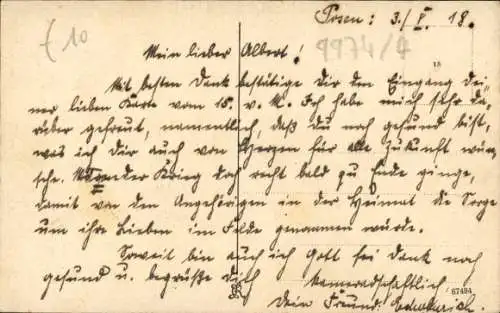 £ 10
Posen: 3./V. 18.
9974/7
Mein lieber Albert!
13
Mit besten Dank bestätige Dir den Eingang dei-
ner lieben Karte vom 15. v. M. Ich habe mich sehr da-
rüber gefreut, namentlich, daß du noch gesund bist,
was ich dir auch von Herzen für alle Zukunft wün-
sche. der Krieg doch recht bald zu Ende ginge,
damit von den Angehörigen in der Heimat die Sorge
um ihre Lieben im Felde genommen würde.
Soweit bin auch ich Gott sei Dank noch
gesund u. begrüße dich
kameradschaftlich
67494
Dein Freund: